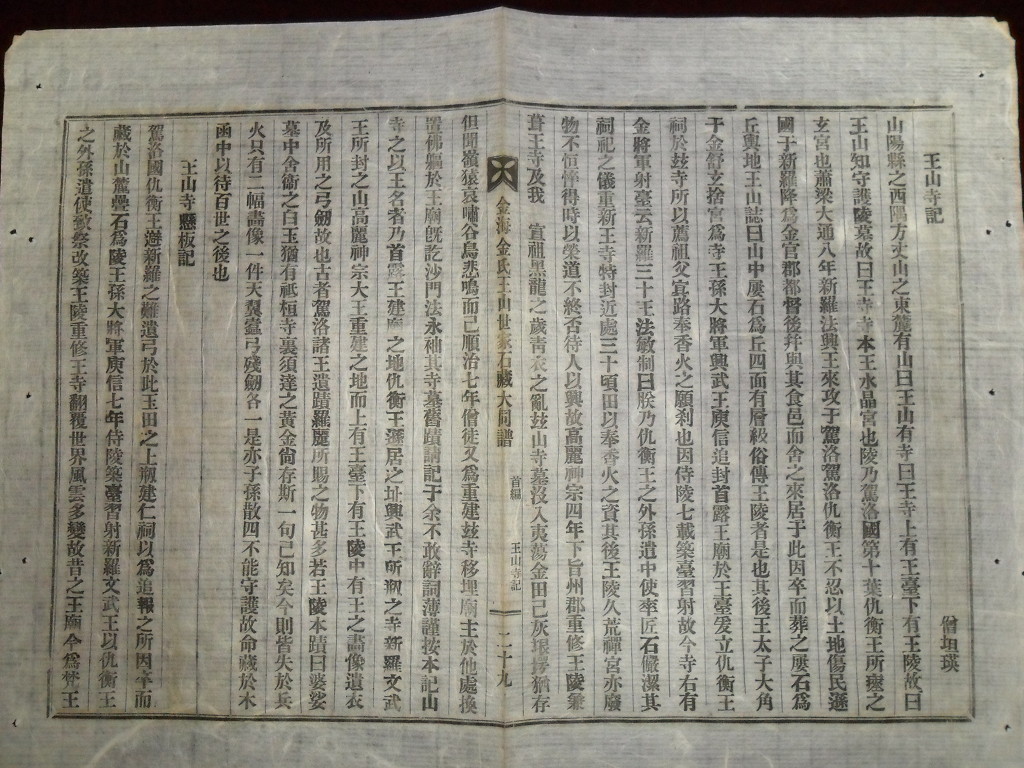 王山寺記
僧坦瑛
山陽縣之西陽方丈山之東麓有山曰王山有寺曰王寺上有王臺下有王陵故曰
王山知守護陵墓故曰王寺寺本王水晶宮也陵乃駕洛國第十葉仇衡王所瘞之
玄宮也蕭梁大通八年新羅法興王來攻于駕洛駕洛仇衡王不忍以土地傷民遜
國于新羅降爲金官郡都督後幷與其食邑而舍之來居于此因卒而葬之屢石爲
丘輿地王山誌曰山中屢石爲丘四面有層級俗傳王陵者是也其後王太子大角
干金舒玄捨宮爲寺王孫大將軍興武王庾信追封首露王廟於王臺爰立仇衡王
祠於玆寺所以薦祖父宜路奉香火之願刹也因侍陵七載築臺習射故今寺右有
金將軍射臺云新羅三十王法敏制曰朕乃仇衡王之外孫遣中使率匠石儼潔其
祠祀之儀重新王寺特封近處三十頃田以奉香火之資其後王陵久荒禪宮亦廢
物不恒悴得時以榮道不終否待人以興故高麗神宗四年下旨州郡重修王陵兼
葺王寺及我　宣祖黑龍之歲靑衣之亂玆山寺墓沒入夷蕩金田已灰垠 猶存
金海金氏王山世家石藏大同譜　首編　王山寺記　二十九
但聞嶺猿哀嘯谷鳥悲鳴而已順治七年僧徒又爲重建玆寺移埋廟主於他處換
置佛軀於王廟旣訖沙門法永袖其寺墓舊蹟請記于余不敢辭詞薄謹按本記山
寺之以王名者乃首露王建廟之地仇衡王遜居之址興武王所刱之寺新羅文武
王所封之山高麗神宗大王重建之地而上有王臺下有王陵中有王之畵像遺衣
及所用之弓劒故也古者駕洛諸王遺蹟羅麗所賜之物甚多若王陵本蹟曰婆娑
墓中舍衞之白玉猶有祇桓寺裏須達之黃金尙存斯一句已知矣今則皆失於兵
火只有二幅畵像一件天翼蠧弓殘劒各一是亦子孫散四不能守護故命藏於木
函中以待百世之後也
王山寺懸板記
駕洛國仇衡王遊新羅之難遺弓於此玉田之上刱建仁祠以爲追報之所因卒而
藏於山麓疊石爲陵王孫大將軍庾信七年侍陵築臺習射新羅文武王以仇衡王
之外孫遣使致祭改築王陵重修王寺翻覆世界風雲多變故昔之王廟今爲梵王